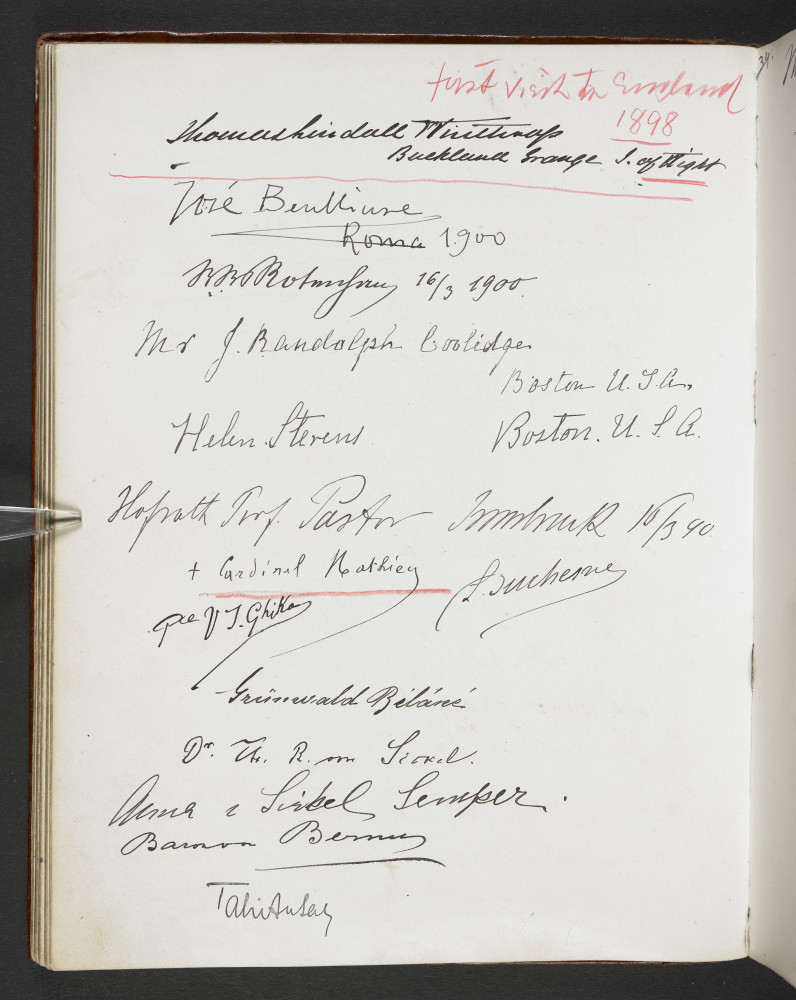 first visit to England
1898
Thomas Lindall Winthrop
Buckland Grange I. of Wight
José Benlliure
Roma 1900
16/3 1900
Mr J. Randolph Coolidge
Boston U.S.A.
Helen Stevens Boston. U.S.A.
Hofrath Prof. Pastor Innsbruck 16/3 90.
+ Cardinal Mathieu L. Duchesne
Pce V. I. Ghika
Grünwald Béláné
Dr. Th. R. von Sickel.
Anna e Sickel Semper.
Baronin
34.